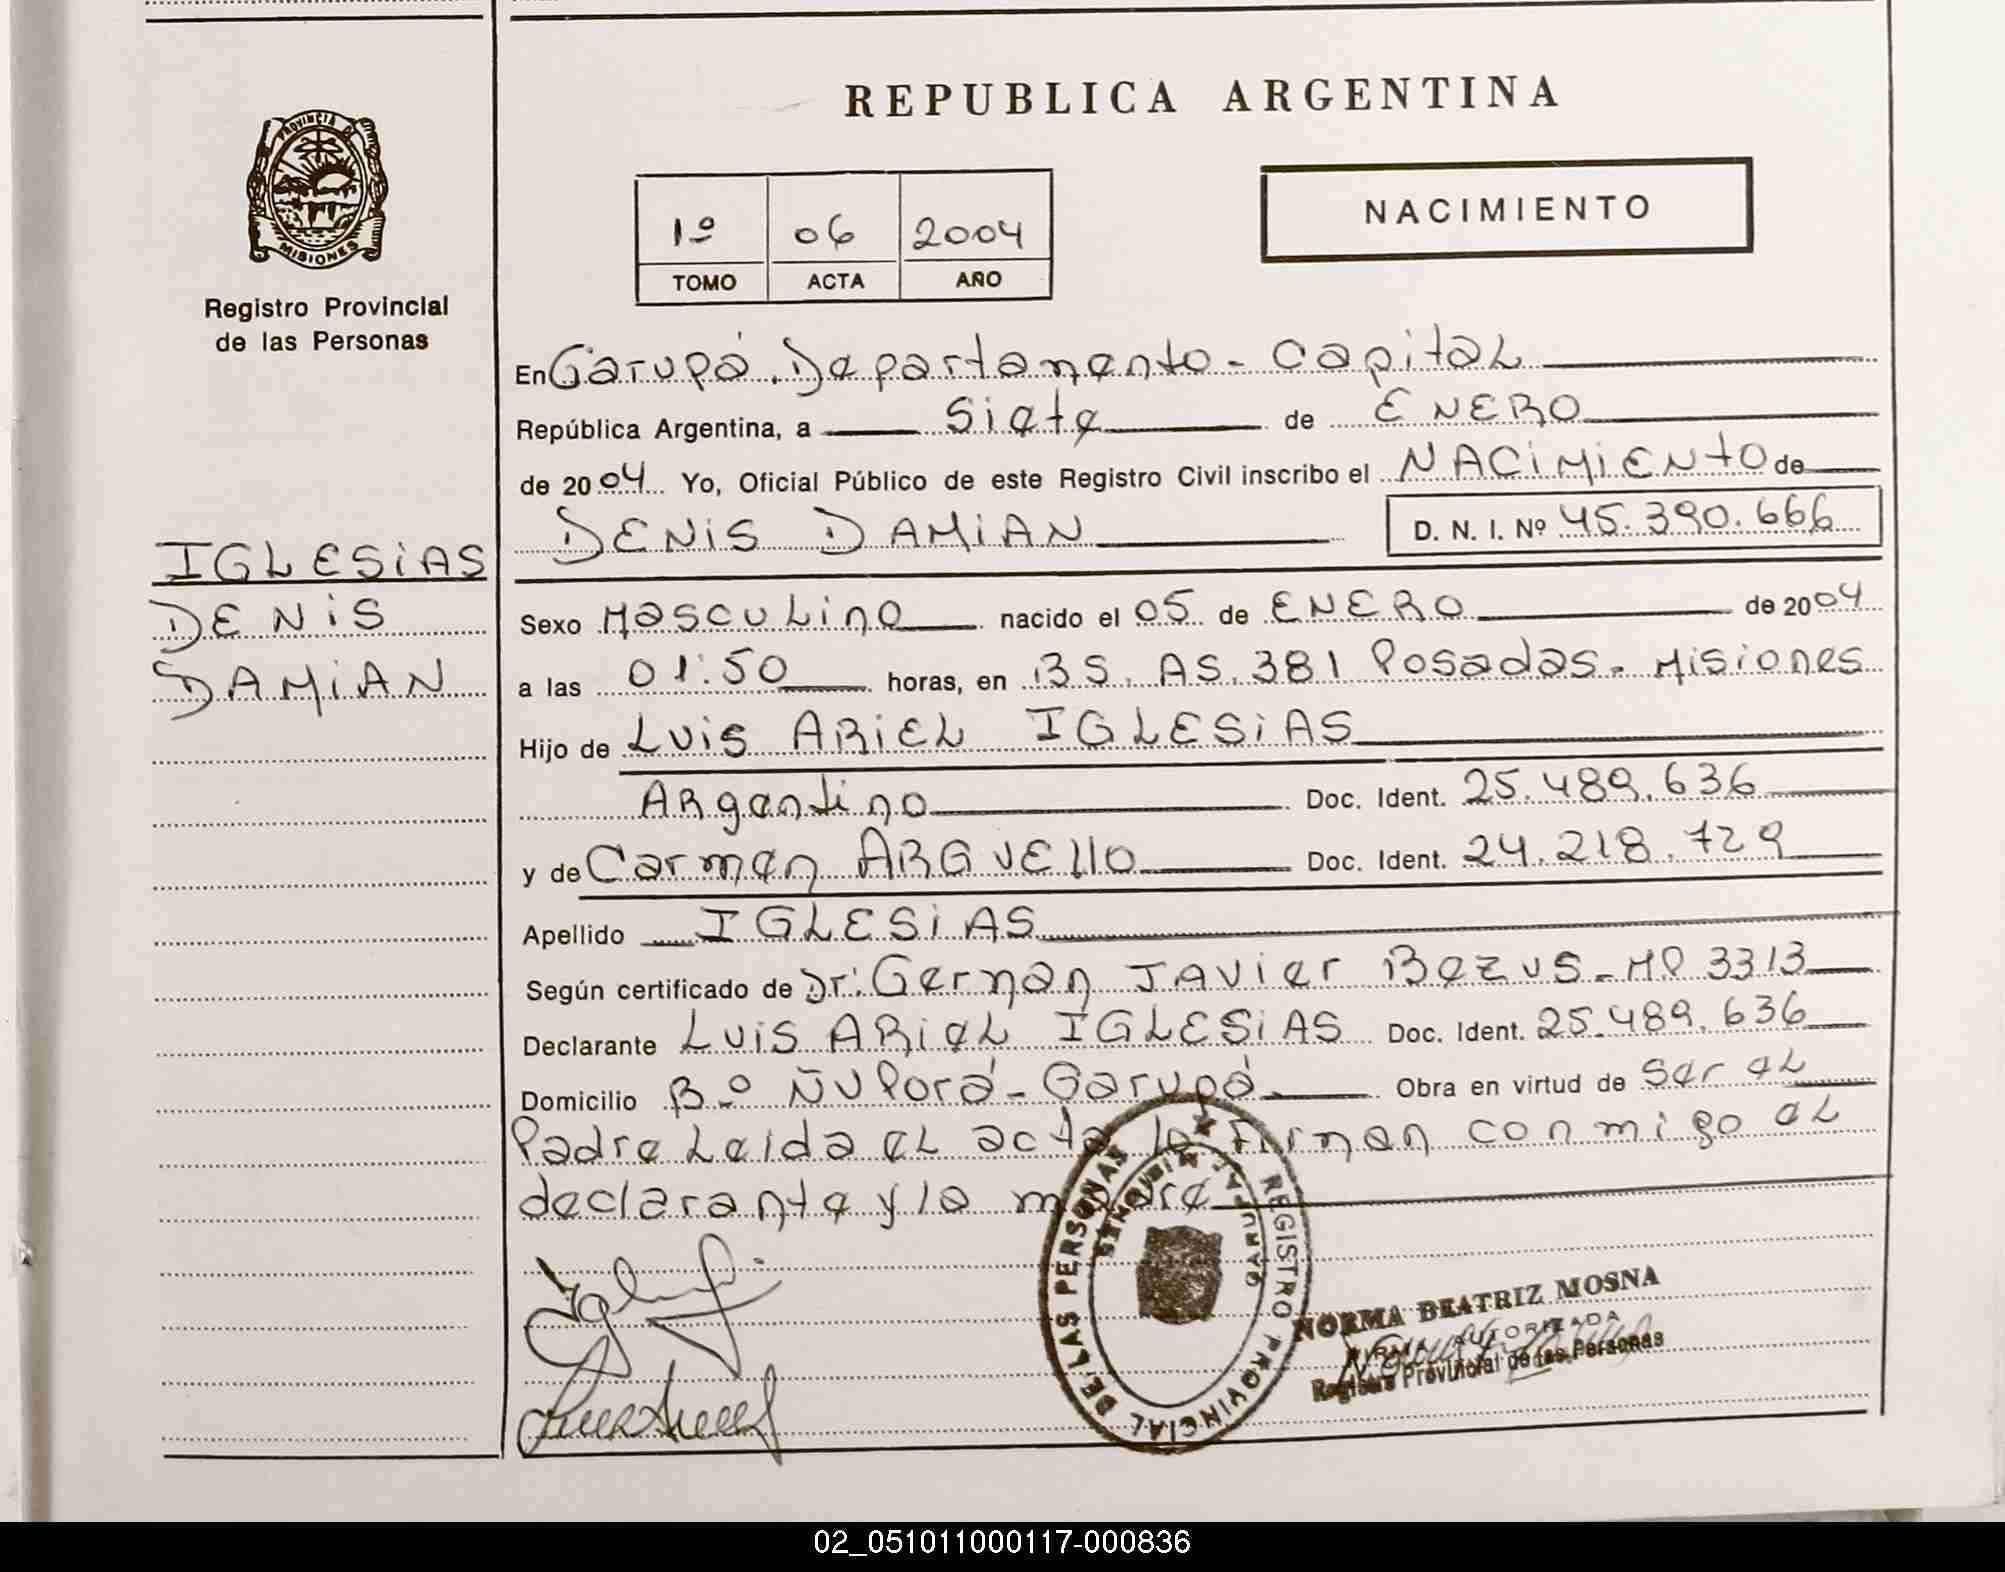 REPUBLICA ARGENTINA
PROVINCIA DE
MISIONES
Registro Provincial
de las Personas
1º 06 2004
TOMO ACTA AÑO
NACIMIENTO
En Garupá. Departamento - Capital
República Argentina, a Siete de ENERO
de 2004 Yo, Oficial Público de este Registro Civil inscribo el NACIMIENTO de
DENIS DAMIAN D. N. I. Nº 45.390.666
IGLESIAS
DENIS
DAMIAN
Sexo Masculino nacido el 05 de ENERO de 2004
a las 01:50 horas, en BS. AS. 381 Posadas - Misiones
Hijo de LUIS ARIEL IGLESIAS
Argentino Doc. Ident. 25.489.636
y de Carmen ARGUELLO Doc. Ident. 24.218.729
Apellido IGLESIAS
Según certificado de Dr: German JAVIER Bezus - MP 3313
Declarante LUIS ARIEL IGLESIAS Doc. Ident. 25.489.636
Domicilio Bº ÑU Porá - Garupá Obra en virtud de Ser el
Padre Leida el acta la firman conmigo el
declarante y la madre
REGISTRO PROVINCIAL DE LAS PERSONAS
MISIONES
NORMA BEATRIZ MOSNA
FIRMA AUTORIZADA
Registro Provincial de las Personas
02_051011000117-000836